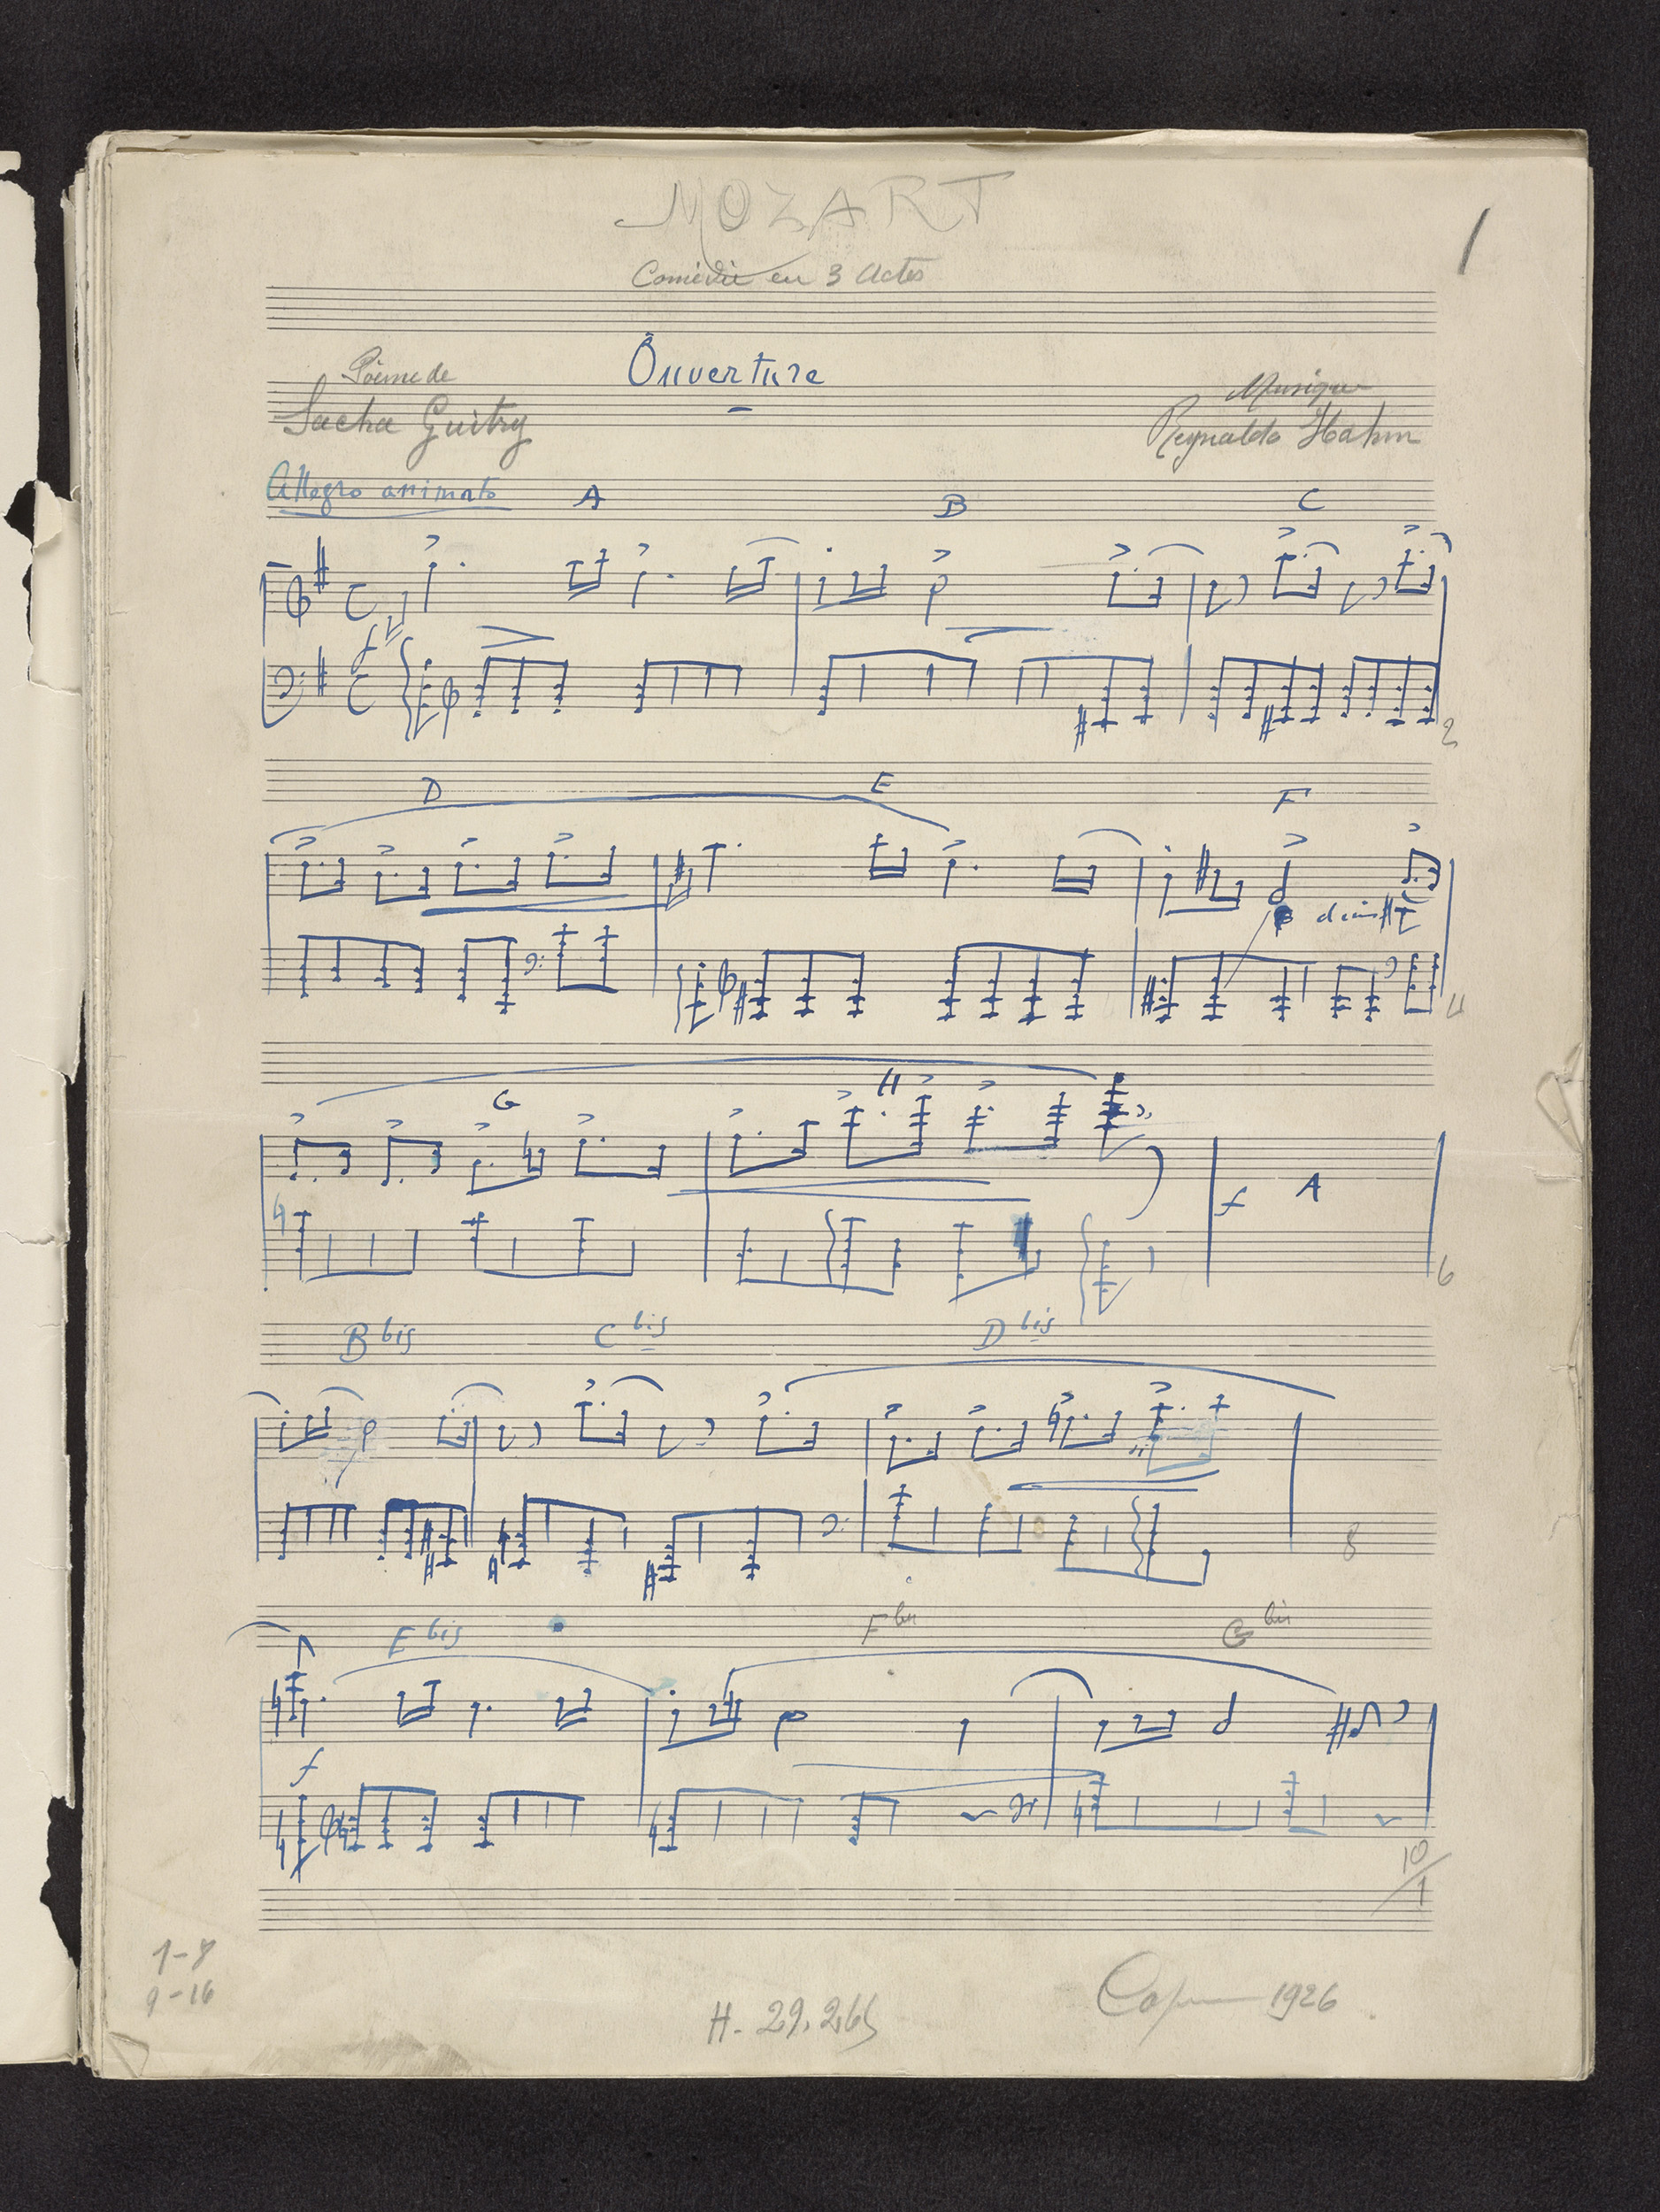 MOZART
1
Comédie en 3 Actes
Ouverture
Poème de
Sacha Guitry
Musique
Reynaldo Hahn
Allegro animato A B C
f
2
D E F
4
G H
f A
6
B bis C bis D bis
8
E bis F bis G bis
f
10/1
1-8
9-16
H. 29.265
1926